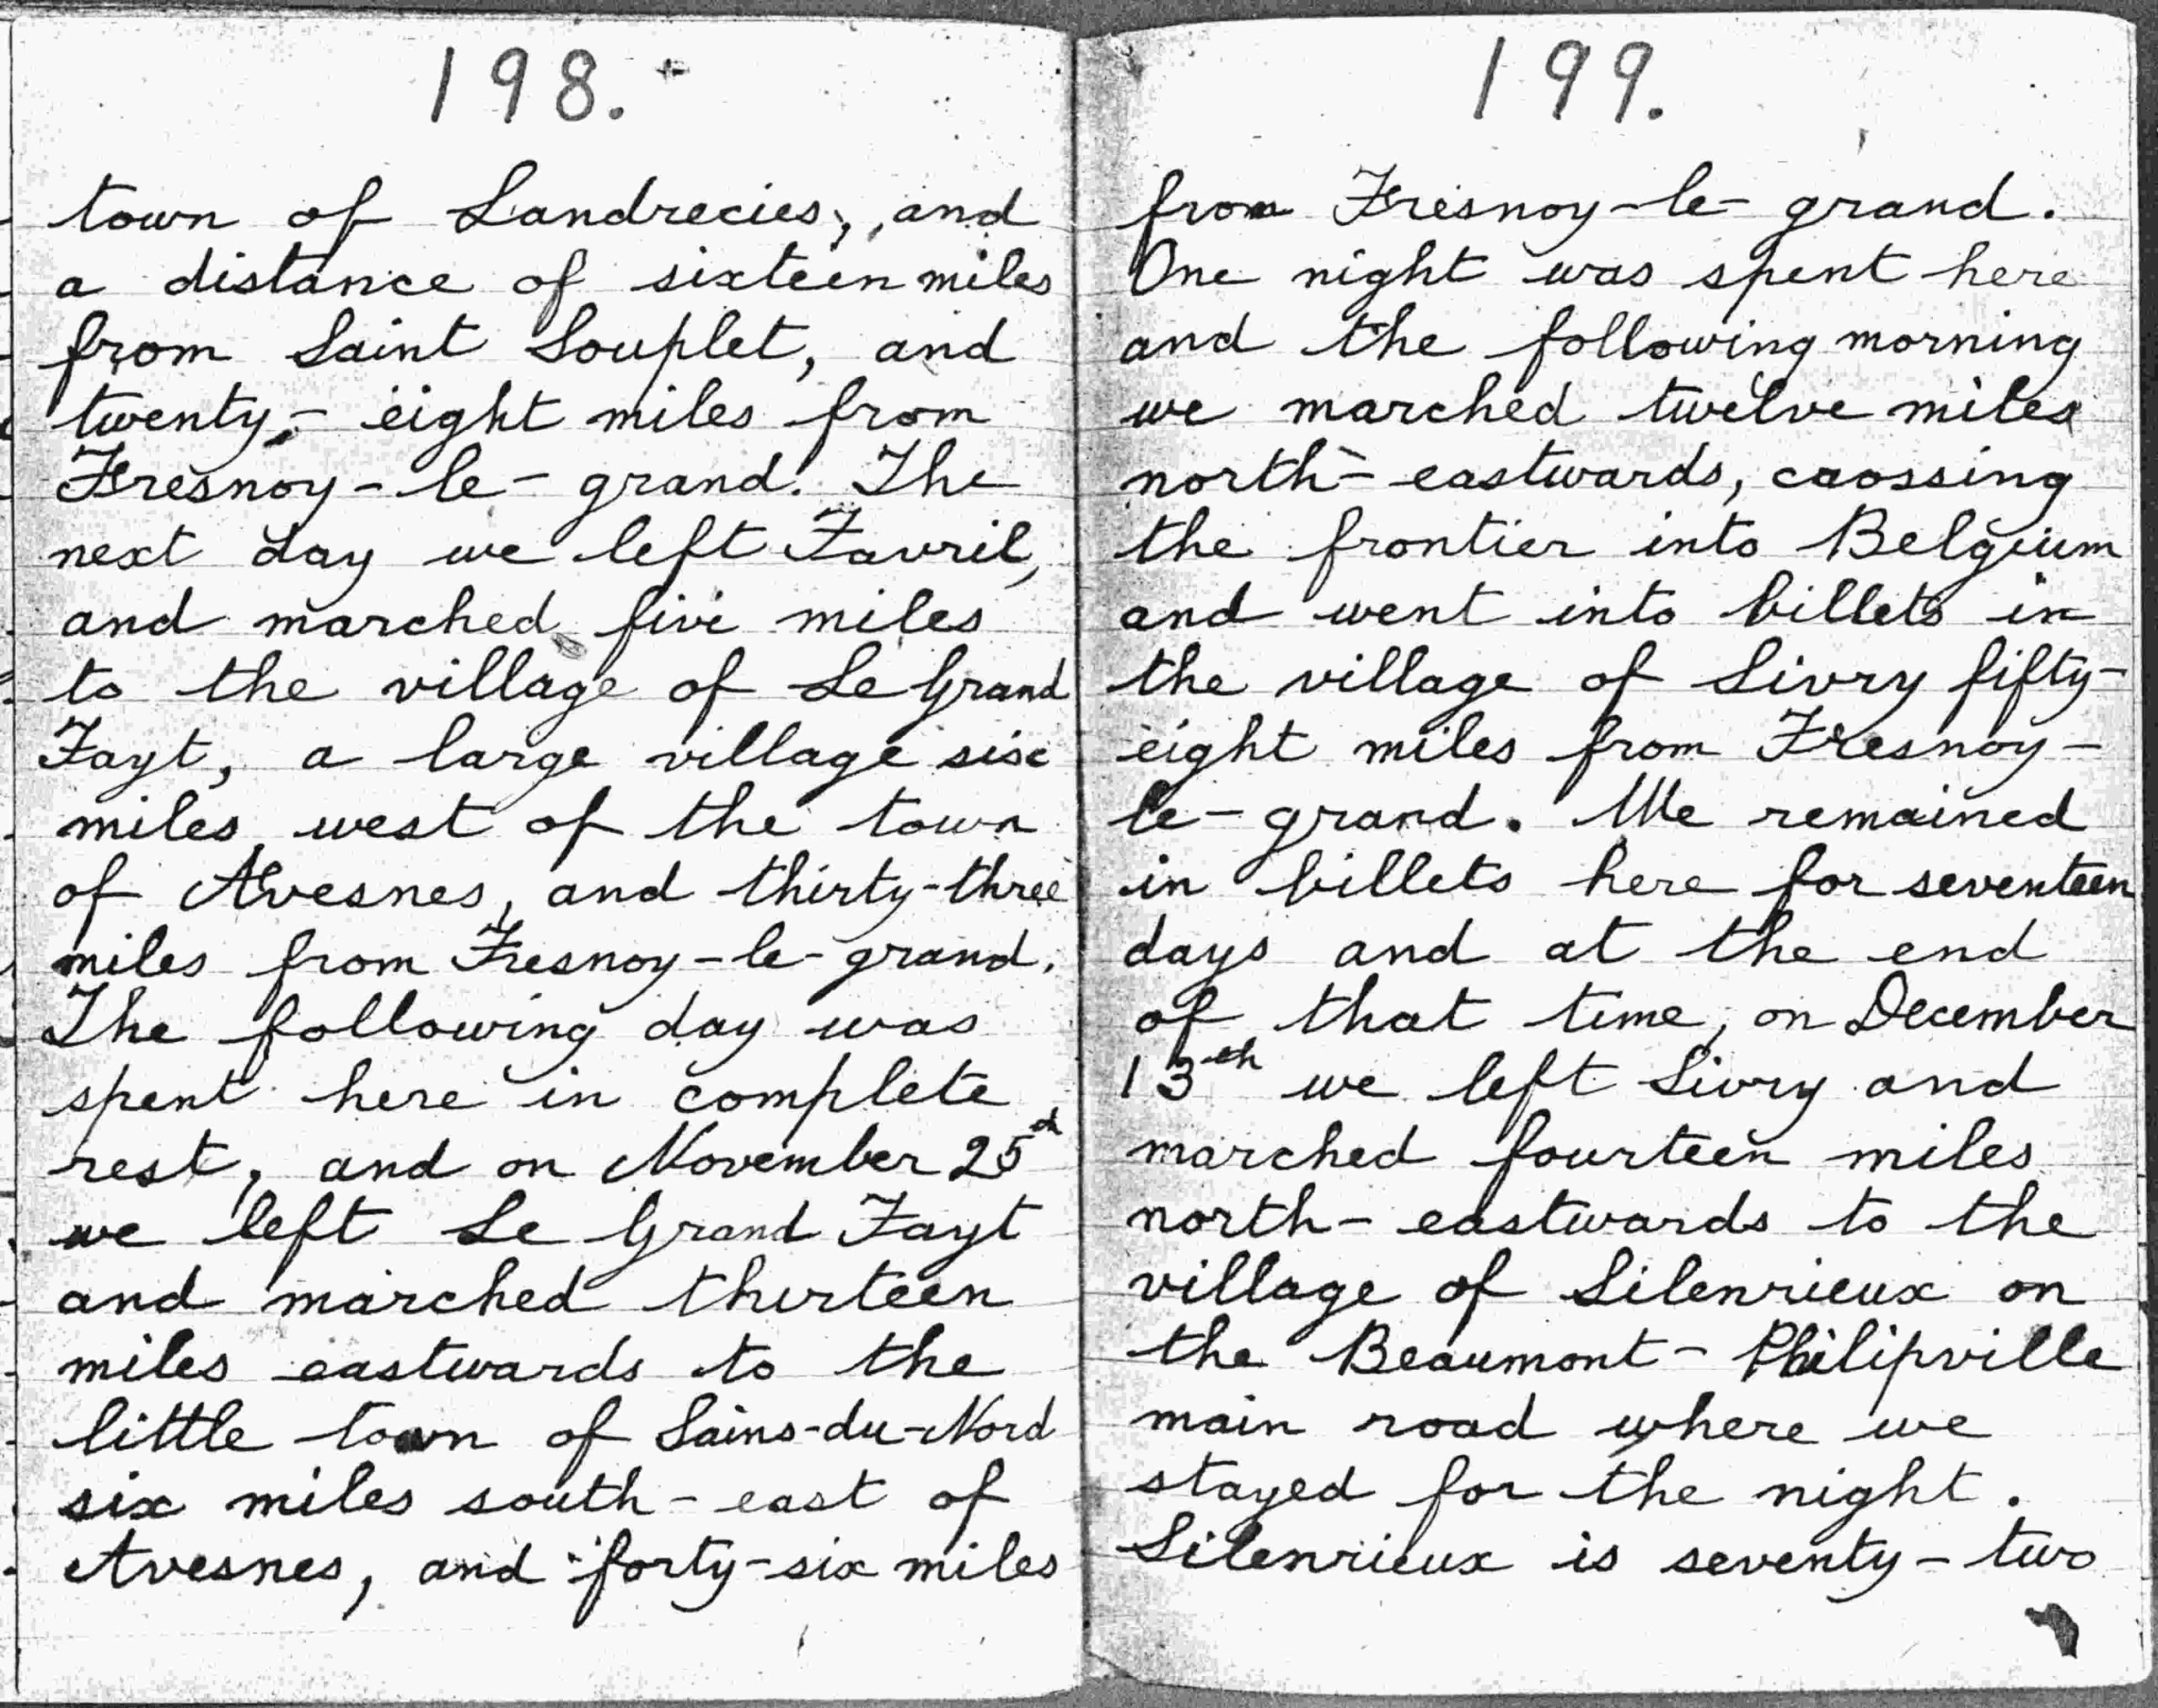 198.
town of Landrecies, and
a distance of sixteen miles
from Saint Souplet, and
twenty-eight miles from
Fresnoy-le-grand. The
next day we left Favril,
and marched five miles
to the village of Le Grand
Fayt, a large village six
miles west of the town
of Avesnes, and thirty-three
miles from Fresnoy-le-grand.
The following day was
spent here in complete
rest, and on November 25th
we left Le Grand Fayt
and marched thirteen
miles eastwards to the
little town of Sains-du-Nord
six miles south-east of
Avesnes, and forty-six miles
199.
from Fresnoy-le-grand.
One night was spent here
and the following morning
we marched twelve miles
north-eastwards, crossing
the frontier into Belgium
and went into billets in
the village of Sivry fifty-
eight miles from Fresnoy-
le-grand. We remained
in billets here for seventeen
days and at the end
of that time, on December
13th we left Sivry and
marched fourteen miles
north-eastwards to the
village of Silenrieux on
the Beaumont-Philipville
main road where we
stayed for the night.
Silenrieux is seventy-two